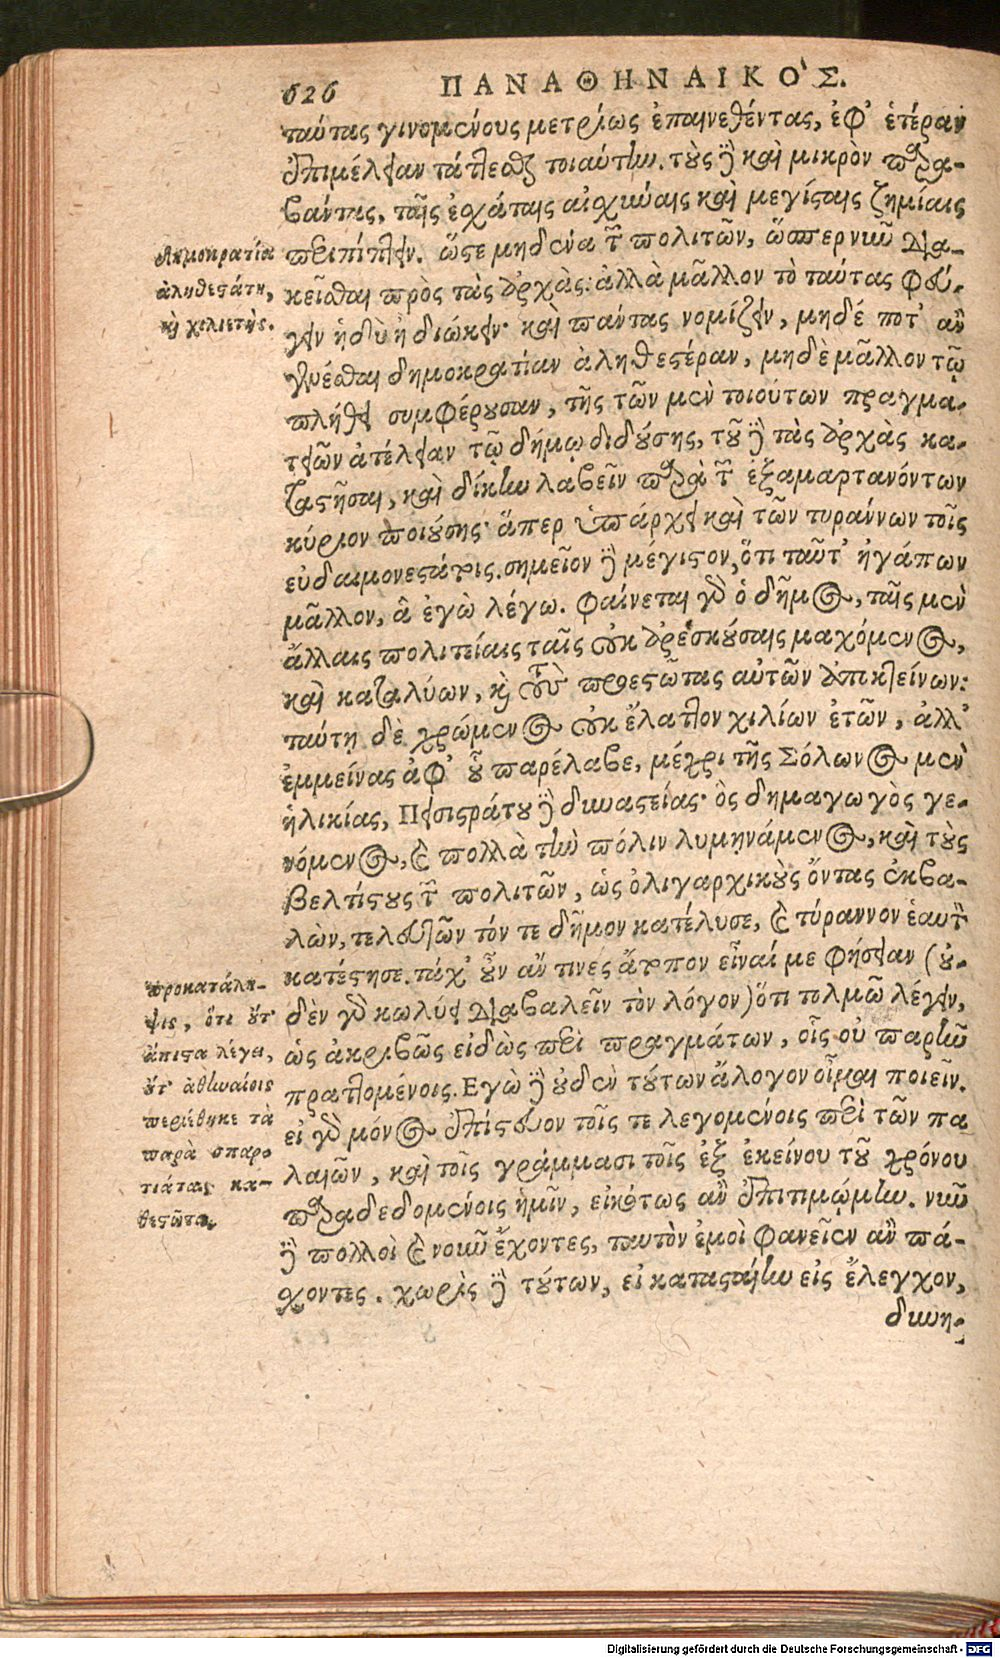 626 ΠΑΝΑΘΗΝΑΙΚΟ'Σ.
ταύτας γινομένους μετρίως ἐπαινεθέντας, ἐφ' ἑτέραν
ἐπιμέλειαν τάττεσθαι τοιαύτην. τοὺς δὲ καὶ μικρὸν παρα-
βάντας, ταῖς ἐσχάταις αἰσχύναις καὶ μεγίσταις ζημίαις
περιπίπτειν. ὥστε μηδένα τῶν πολιτῶν, ὥσπερ νῦν δια-
κεῖσθαι πρὸς τὰς ἀρχὰς: ἀλλὰ μᾶλλον τὸ ταύτας φεύ-
γειν ἡδὺ ἢ διώκειν· καὶ πάντας νομίζειν, μηδέ ποτ' ἂν
γενέσθαι δημοκρατίαν ἀληθεστέραν, μηδὲ μᾶλλον τῷ
πλήθει συμφέρουσαν, τῆς τῶν μὲν τοιούτων πραγμα-
τειῶν ἀτέλειαν τῷ δήμῳ διδούσης, τοῦ δὲ τὰς ἀρχὰς κα-
ταστῆσαι, καὶ δίκην λαβεῖν παρὰ τῶν ἐξαμαρτανόντων
κύριον ποιούσης· ἅπερ ὑπάρχει καὶ τῶν τυράννων τοῖς
εὐδαιμονεστάτοις. σημεῖον δὲ μέγιστον, ὅτι ταῦτ' ἠγάπων
μᾶλλον, ἃ ἐγὼ λέγω. φαίνεται γὰρ ὁ δῆμος, ταῖς μὲν
ἄλλαις πολιτείαις ταῖς οὐκ ἀρεσκούσαις μαχόμενος,
καὶ καταλύων, καὶ τοὺς προεστῶτας αὐτῶν ἀποκτείνων:
ταύτῃ δὲ χρώμενος οὐκ ἔλαττον χιλίων ἐτῶν, ἀλλ'
ἐμμείνας ἀφ' οὗ παρέλαβε, μέχρι τῆς Σόλωνος μὲν
ἡλικίας, Πεισιστράτου δὲ δυναστείας· ὃς δημαγωγὸς γε-
νόμενος, καὶ πολλὰ τὴν πόλιν λυμηνάμενος, καὶ τοὺς
βελτίστους τῶν πολιτῶν, ὡς ὀλιγαρχικοὺς ὄντας ἐκβα-
λὼν, τελευτῶν τόν τε δῆμον κατέλυσε, καὶ τύραννον ἑαυτὸν
κατέστησε. τάχ' οὖν ἄν τινες ἄτοπον εἶναί με φήσειαν (οὐ-
δὲν γὰρ κωλύει διαβαλεῖν τὸν λόγον) ὅτι τολμῶ λέγειν,
ὡς ἀκριβῶς εἰδὼς περὶ πραγμάτων, οἷς οὐ παρῆν
πραττομένοις. Ἐγὼ δὲ οὐδὲν τούτων ἄλογον οἶμαι ποιεῖν.
εἰ γὰρ μόνος ἐπίστευον τοῖς τε λεγομένοις περὶ τῶν πα
λαιῶν, καὶ τοῖς γράμμασι τοῖς ἐξ ἐκείνου τοῦ χρόνου
παραδεδομένοις ἡμῖν, εἰκότως ἂν ἐπιτιμῴμην. νῦν
δὲ πολλοὶ καὶ νοῦν ἔχοντες, ταυτὸν ἐμοὶ φανεῖεν ἂν πά-
σχοντες. χωρὶς δὲ τούτων, εἰ κατασταίην εἰς ἔλεγχον,
δυνη-
Δημοκρατία
ἀληθεστάτη,
καὶ χιλιετής.
προκατάλη-
ψις, ὅτι οὔτ'
ἄπιστα λέγει,
οὔτ' ἀθηναίοις
περιέθηκε τὰ
παρὰ σπαρ
τιάταις κα-
θεστῶτα.
Digitalisierung gefördert durch die Deutsche Forschungsgemeinschaft - DFG